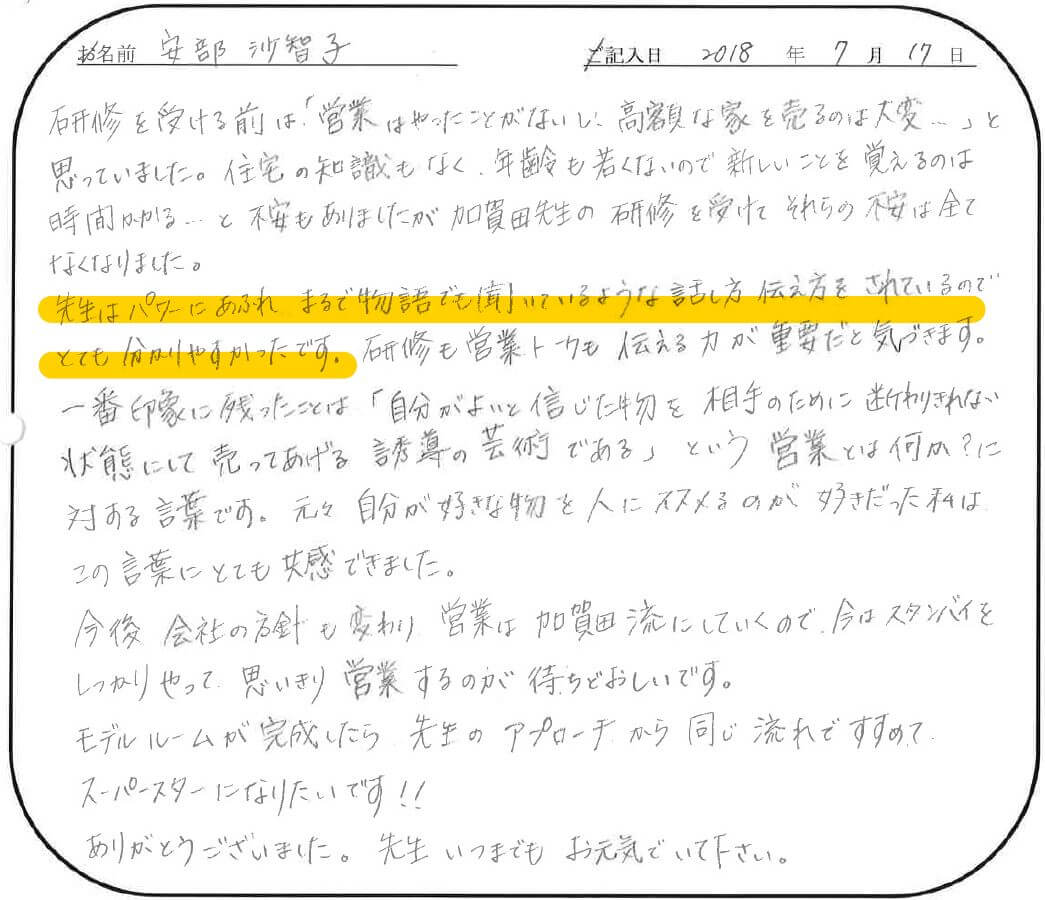 お名前 安部 沙智子 ご記入日 2018 年 7 月 17 日
研修を受ける前は「営業はやったことがないし、高額な家を売るのは大変…」と
思っていました。住宅の知識もなく、年齢も若くないので新しいことを覚えるのは
時間かかる…と不安もありましたが加賀田先生の研修を受けてそれらの不安は全て
なくなりました。
先生はパワーにあふれ まるで物語でも聴いているような話し方 伝え方をされているので
とても分かりやすかったです。研修も営業トークも伝える力が重要だと気づきます。
一番印象に残ったことは「自分がよいと信じた物を相手のために断わりきれない
状態にして売ってあげる誘導の芸術である」という営業とは何か?に
対する言葉です。元々自分が好きな物を人にススメるのが好きだった私は
この言葉にとても共感できました。
今後 会社の方針も変わり 営業は加賀田流にしていくので、今はスタンバイを
しっかりやって 思いきり営業するのが待ちどおしいです。
モデルルームが完成したら 先生のアプローチから同じ流れですすめて
スーパースターになりたいです!!
ありがとうございました。先生いつまでもお元気でいて下さい。